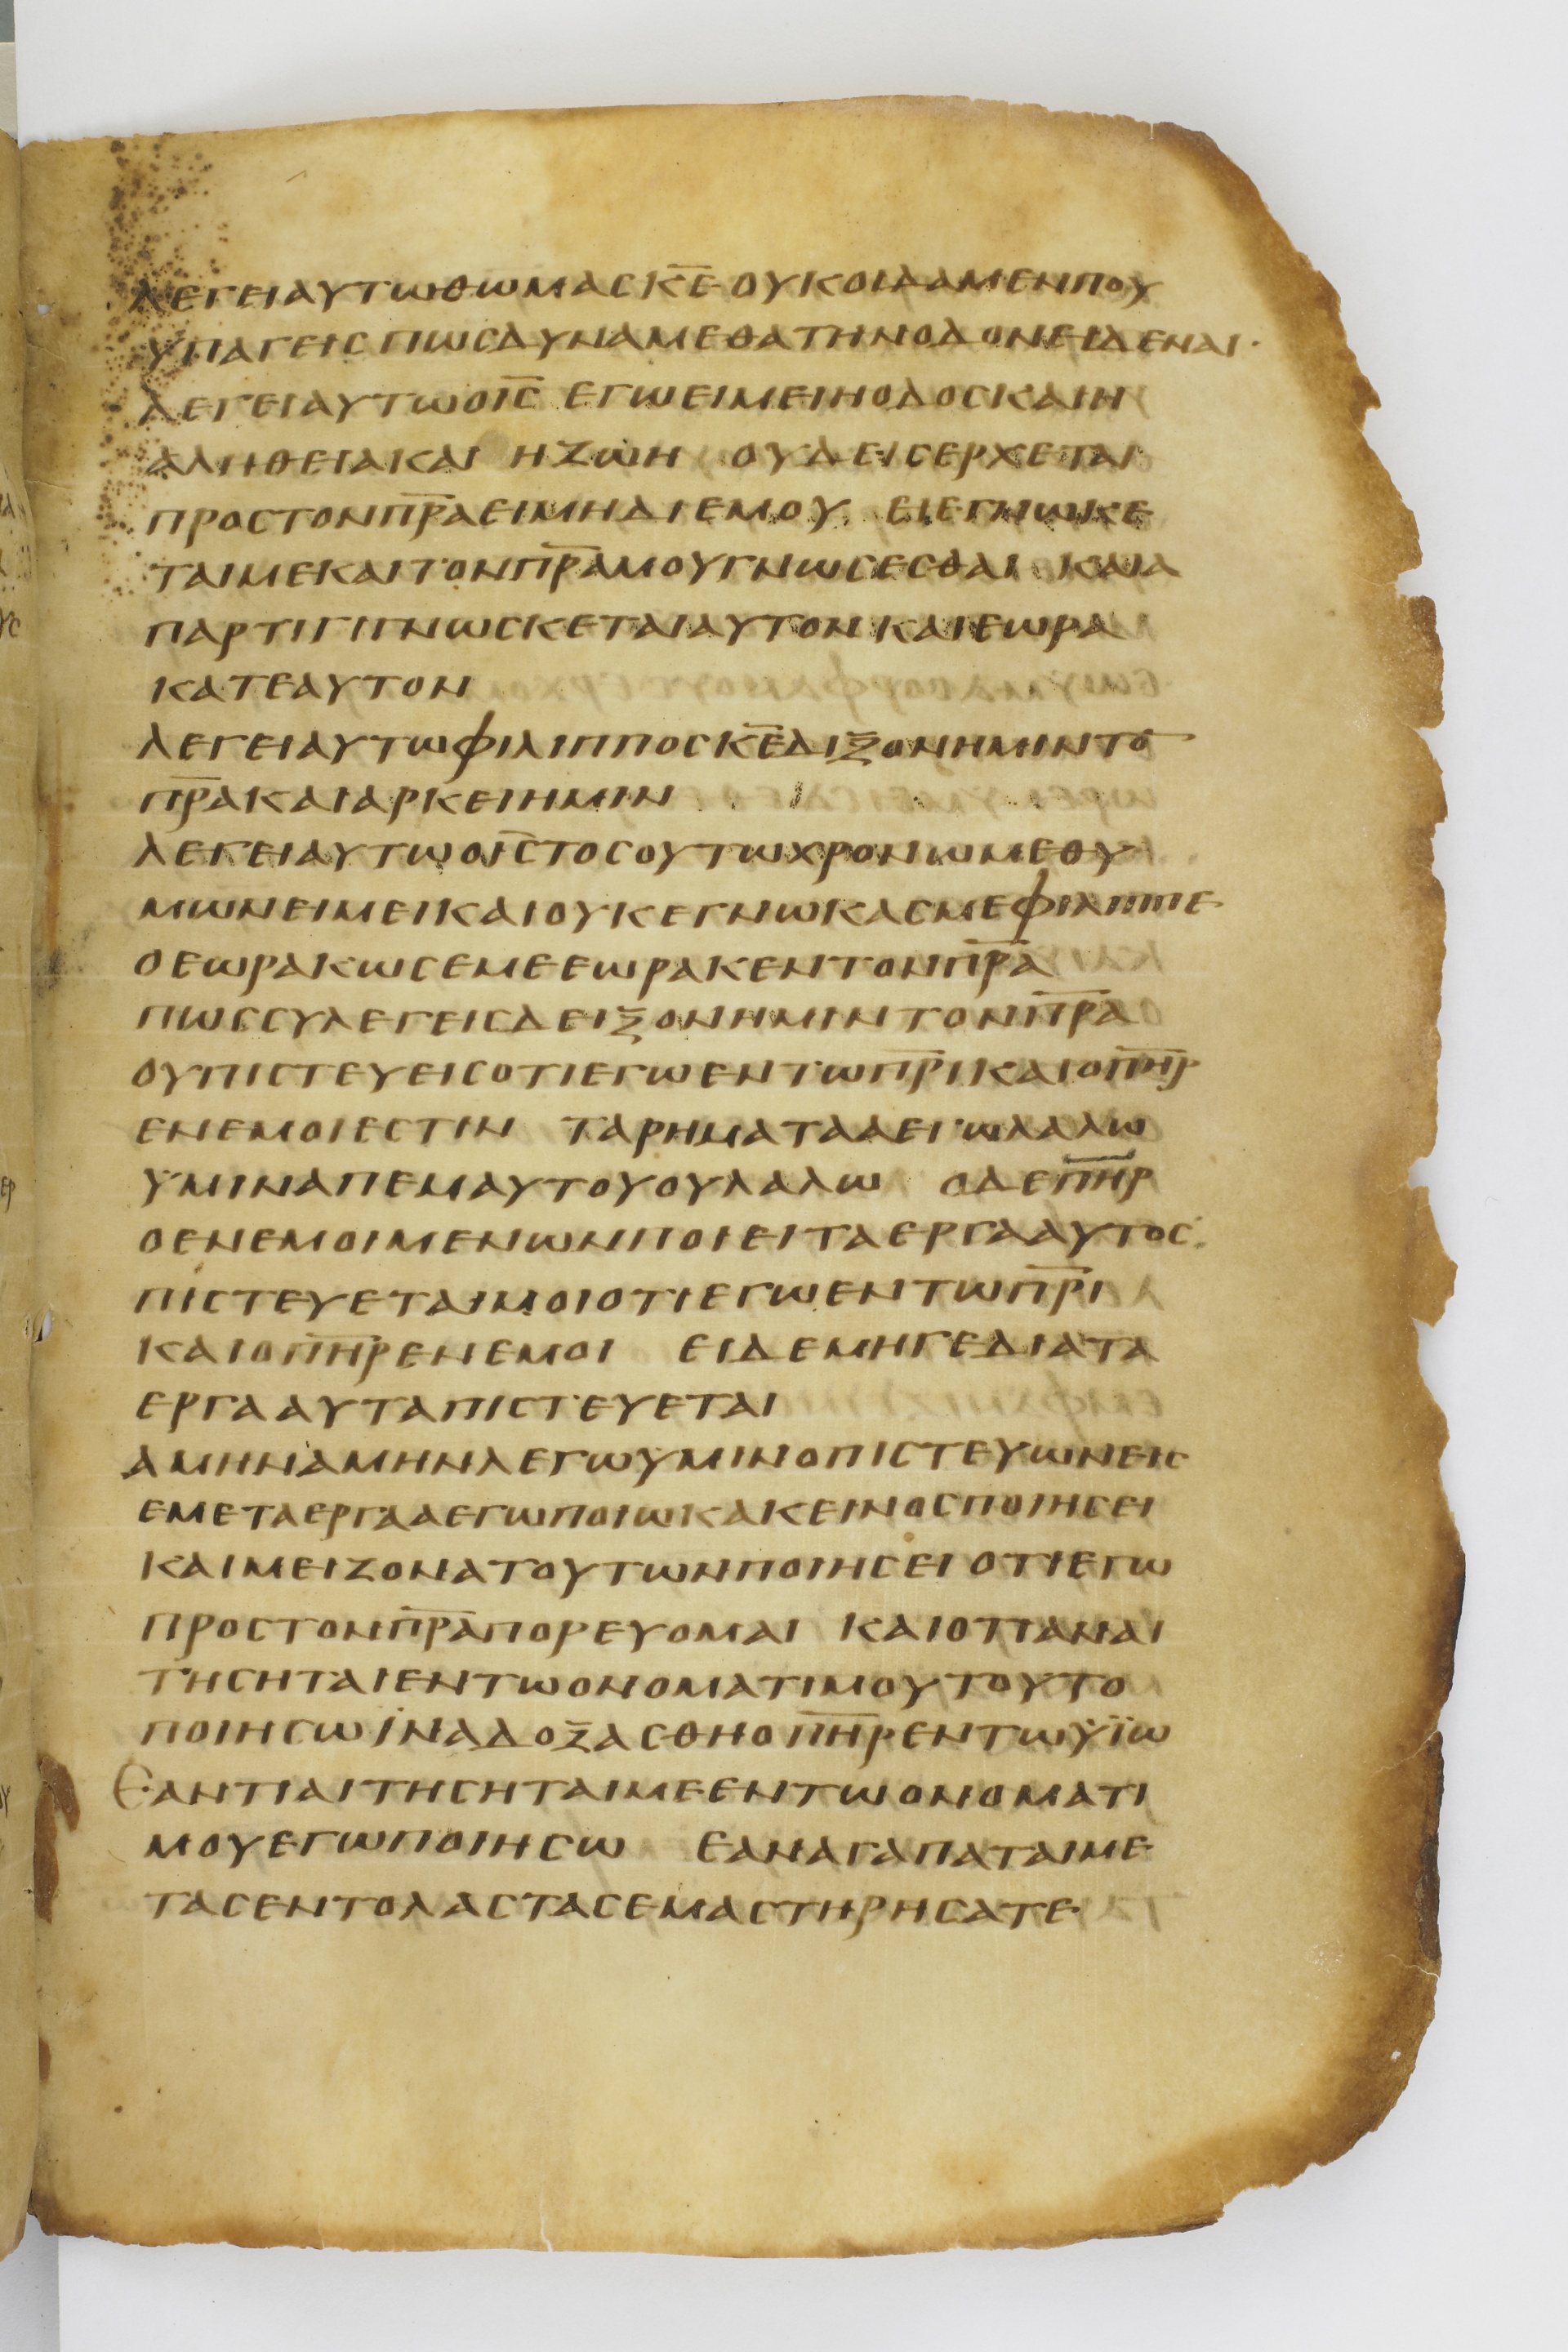 ΛΕΓΕΙΑΥΤΩΘΩΜΑϹΚ̅Ε̅ ΟΥΚΟΙΔΑΜΕΝΠΟΥ
ΥΠΑΓΕΙϹ ΠΩϹΔΥΝΑΜΕΘΑΤΗΝΟΔΟΝΕΙΔΕΝΑΙ·
ΛΕΓΕΙΑΥΤΩΟΙ̅Ϲ̅ ΕΓΩΕΙΜΕΙΗΟΔΟϹΚΑΙΗ
ΑΛΗΘΕΙΑΚΑΙ ΗΖΩΗ ΟΥΔΕΙϹΕΡΧΕΤΑΙ
ΠΡΟϹΤΟΝΠ̅Ρ̅Α̅ΕΙΜΗΔΙΕΜΟΥ ΕΙΕΓΝΩΚΕ
ΤΑΙΜΕΚΑΙΤΟΝΠ̅Ρ̅Α̅ΜΟΥΓΝΩϹΕϹΘΑΙ ΚΑΙΑ
ΠΑΡΤΙΓΙΓΝΩϹΚΕΤΑΙΑΥΤΟΝΚΑΙΕΩΡΑ
ΚΑΤΕΑΥΤΟΝ
ΛΕΓΕΙΑΥΤΩΦΙΛΙΠΠΟϹΚ̅Ε̅ΔΙΞΟΝΗΜΙΝΤΟ̅
Π̅Ρ̅Α̅ΚΑΙΑΡΚΕΙΗΜΙΝ
ΛΕΓΕΙΑΥΤΩΟΙ̅Ϲ̅ΤΟϹΟΥΤΩΧΡΟΝΩΜΕΘΥ
ΜΩΝΕΙΜΕΙΚΑΙΟΥΚΕΓΝΩΚΑϹΜΕΦΙΛΙΠΠΕ
ΟΕΩΡΑΚΩϹΕΜΕΕΩΡΑΚΕΝΤΟΝΠ̅Ρ̅Α̅
ΠΩϹϹΥΛΕΓΕΙϹΔΕΙΞΟΝΗΜΙΝΤΟΝΠ̅Ρ̅Α̅
ΟΥΠΙϹΤΕΥΕΙϹΟΤΙΕΓΩΕΝΤΩΠ̅Ρ̅Ι̅ΚΑΙΟΠ̅Η̅Ρ̅
ΕΝΕΜΟΙΕϹΤΙΝ ΤΑΡΗΜΑΤΑΑΕΓΩΛΑΛΩ
ΥΜΙΝΑΠΕΜΑΥΤΟΥΟΥΛΑΛΩ ΟΔΕΠ̅Η̅Ρ̅
ΟΕΝΕΜΟΙΜΕΝΩΝΠΟΙΕΙΤΑΕΡΓΑΑΥΤΟϹ·
ΠΙϹΤΕΥΕΤΑΙΜΟΙΟΤΙΕΓΩΕΝΤΩΠ̅Ρ̅Ι̅
ΚΑΙΟΠ̅Η̅Ρ̅ΕΝΕΜΟΙ ΕΙΔΕΜΗΓΕΔΙΑΤΑ
ΕΡΓΑΑΥΤΑΠΙϹΤΕΥΕΤΑΙ
ΑΜΗΝΑΜΗΝΛΕΓΩΥΜΙΝΟΠΙϹΤΕΥΩΝΕΙϹ
ΕΜΕΤΑΕΡΓΑΑΕΓΩΠΟΙΩΚΑΚΕΙΝΟϹΠΟΙΗϹΕΙ
ΚΑΙΜΕΙΖΟΝΑΤΟΥΤΩΝΠΟΙΗϹΕΙΟΤΙΕΓΩ
ΠΡΟϹΤΟΝΠ̅Ρ̅Α̅ΠΟΡΕΥΟΜΑΙ ΚΑΙΟΤΙΑΝΑΙ
ΤΗϹΗΤΑΙΕΝΤΩΟΝΟΜΑΤΙΜΟΥΤΟΥΤΟ
ΠΟΙΗϹΩΙΝΑΔΟΞΑϹΘΗΟΠ̅Η̅Ρ̅ΕΝΤΩΥΪΩ
ΕΑΝΤΙΑΙΤΗϹΗΤΑΙΜΕΕΝΤΩΟΝΟΜΑΤΙ
ΜΟΥΕΓΩΠΟΙΗϹΩ ΕΑΝΑΓΑΠΑΤΑΙΜΕ
ΤΑϹΕΝΤΟΛΑϹΤΑϹΕΜΑϹΤΗΡΗϹΑΤΕ